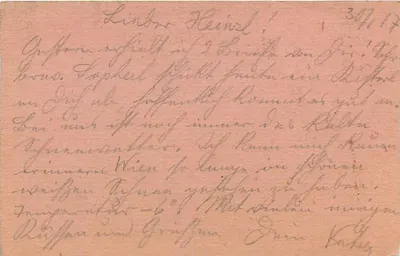 30/I 17
Lieber Heinzl!
Gestern erhielt ich 2 Briefe von Dir! Sehr
brav. Sopherl schickt heute ein Kisterl
an Dich ab, hoffentlich kommt es gut an.
Bei uns ist noch immer das kalte
Schneewetter. Ich kann mich kaum
erinnern Wien so lange im schönen
weißen Schnee gesehen zu haben.
Temperatur -6°! Mit vielen innigen
Küssen und Grüßen Dein